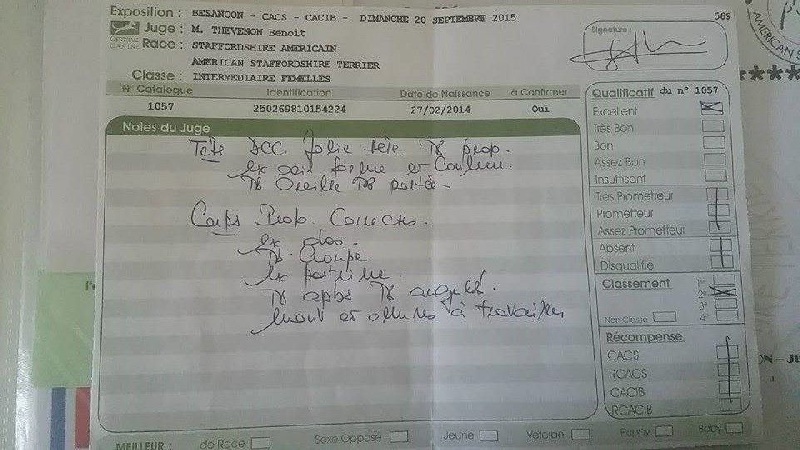 Exposition : BESANCON - CACS - CACIB - DIMANCHE 20 SEPTEMBRE 2015
Juge : M. THEVENON Benoit
Race : STAFFORDSHIRE AMERICAIN
AMERICAN STAFFORDSHIRE TERRIER
Classe : INTERMEDIAIRE FEMELLES
N° Catalogue Identification Date de Naissance à Confirmer
1057 250269810154224 27/02/2014 Oui
Notes du Juge
Tête Jolie tête TB prop.
Ex oeil forme et Couleur.
TB Oreille TB portée.
Corps Prop. Correctes.
Ex dos.
TB Croupe
Ex poitrine
TB TB
et à travailler
Signature :
Qualificatif du n° 1057
Excellent
Très Bon
Bon
Assez Bon
Insuffisant
Très Prometteur
Prometteur
Assez Prometteur
Absent
Disqualifié
Classement
Non Classé
Récompense
CACS
RCACS
CACIB
RCACIB
MEILLEUR : de Race Sexe Opposé Jeune Vétéran Puppy Baby